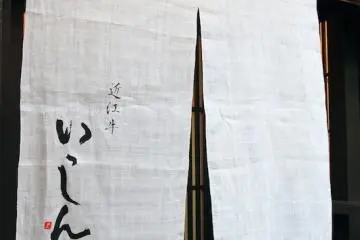 近江牛
いっしん